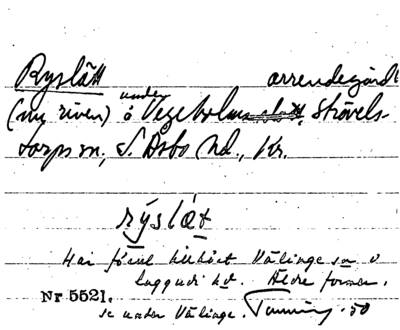 Ryslätt arrendegård
(nu riven) å under Vegeholms slott, Strövels-
torps sn, S. Åsbo hd., Kr.
rýslæt
Har förut tillhört Välinge sn o
Luggude hd. Äldre former,
Nr 5521. se under Välinge.